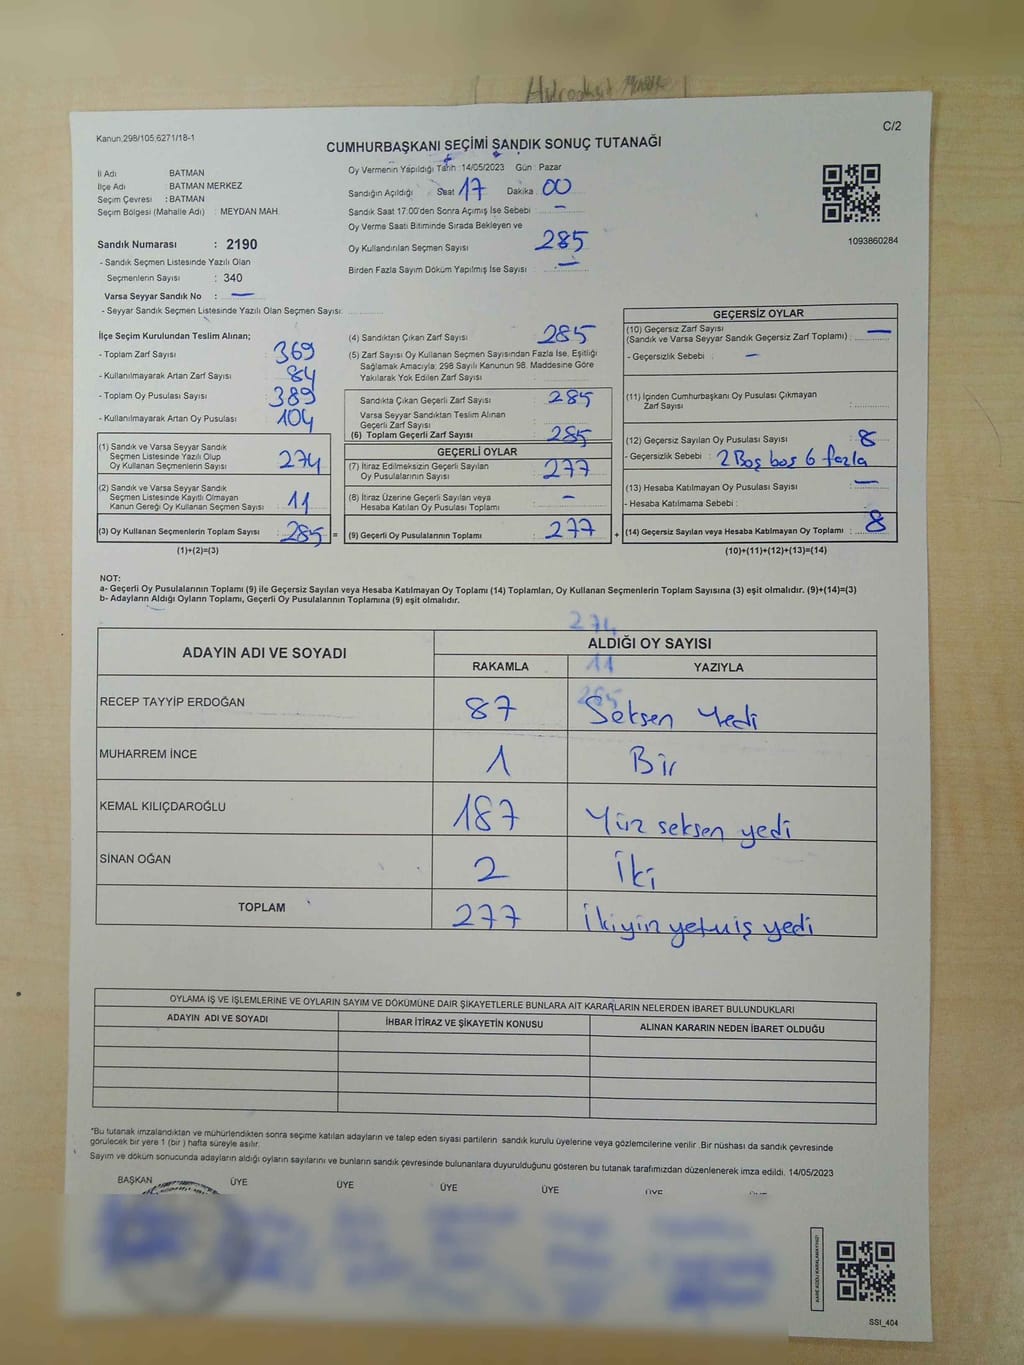 Kanun.298/105,6271/18-1
C/2
CUMHURBAŞKANI SEÇİMİ SANDIK SONUÇ TUTANAĞI
İl Adı BATMAN
İlçe Adı : BATMAN MERKEZ
Seçim Çevresi : BATMAN
Seçim Bölgesi (Mahalle Adı) : MEYDAN MAH.
Sandık Numarası : 2190
- Sandık Seçmen Listesinde Yazılı Olan
Seçmenlerin Sayısı : 340
Varsa Seyyar Sandık No : —
- Seyyar Sandık Seçmen Listesinde Yazılı Olan Seçmen Sayısı:
Oy Vermenin Yapıldığı Tarih :14/05/2023 Gün : Pazar
Sandığın Açıldığı Saat 17 Dakika 00
Sandık Saat 17:00'den Sonra Açımış İse Sebebi : —
Oy Verme Saati Bitiminde Sırada Bekleyen ve
Oy Kullandırılan Seçmen Sayısı : 285
Birden Fazla Sayım Döküm Yapılmış İse Sayısı : —
1093860284
İlçe Seçim Kurulundan Teslim Alınan;
- Toplam Zarf Sayısı : 369
- Kullanılmayarak Artan Zarf Sayısı : 84
- Toplam Oy Pusulası Sayısı : 389
- Kullanılmayarak Artan Oy Pusulası : 104
(1) Sandık ve Varsa Seyyar Sandık
Seçmen Listesinde Yazılı Olup
Oy Kullanan Seçmenlerin Sayısı : 274
(2) Sandık ve Varsa Seyyar Sandık
Seçmen Listesinde Kayıtlı Olmayan
Kanun Gereği Oy Kullanan Seçmen Sayısı : 11
(3) Oy Kullanan Seçmenlerin Toplam Sayısı : 285 =
(1)+(2)=(3)
(4) Sandıktan Çıkan Zarf Sayısı : 285
(5) Zarf Sayısı Oy Kullanan Seçmen Sayısından Fazla İse, Eşitliği
Sağlamak Amacıyla; 298 Sayılı Kanunun 98. Maddesine Göre
Yakılarak Yok Edilen Zarf Sayısı :
Sandıkta Çıkan Geçerli Zarf Sayısı : 285
Varsa Seyyar Sandıktan Teslim Alınan
Geçerli Zarf Sayısı :
(6) Toplam Geçerli Zarf Sayısı : 285
GEÇERLİ OYLAR
(7) İtiraz Edilmeksizin Geçerli Sayılan
Oy Pusulalarının Sayısı : 277
(8) İtiraz Üzerine Geçerli Sayılan veya
Hesaba Katılan Oy Pusulası Toplamı : —
(9) Geçerli Oy Pusulalarının Toplamı : 277 +
GEÇERSİZ OYLAR
(10) Geçersiz Zarf Sayısı
(Sandık ve Varsa Seyyar Sandık Geçersiz Zarf Toplamı) : —
- Geçersizlik Sebebi : —
(11) İçinden Cumhurbaşkanı Oy Pusulası Çıkmayan
Zarf Sayısı :
(12) Geçersiz Sayılan Oy Pusulası Sayısı : 8
- Geçersizlik Sebebi : 2 Boş boş 6 fazla
(13) Hesaba Katılmayan Oy Pusulası Sayısı : —
- Hesaba Katılmama Sebebi :
(14) Geçersiz Sayılan veya Hesaba Katılmayan Oy Toplamı : 8
(10)+(11)+(12)+(13)=(14)
NOT:
a- Geçerli Oy Pusulalarının Toplamı (9) ile Geçersiz Sayılan veya Hesaba Katılmayan Oy Toplamı (14) Toplamları, Oy Kullanan Seçmenlerin Toplam Sayısına (3) eşit olmalıdır. (9)+(14)=(3)
b- Adayların Aldığı Oyların Toplamı, Geçerli Oy Pusulalarının Toplamına (9) eşit olmalıdır.
274
11
285
ADAYIN ADI VE SOYADI
ALDIĞI OY SAYISI
RAKAMLA YAZIYLA
RECEP TAYYİP ERDOĞAN 87 Seksen Yedi
MUHARREM İNCE 1 Bir
KEMAL KILIÇDAROĞLU 187 Yüz seksen yedi
SİNAN OĞAN 2 İki
TOPLAM 277 İkiyüz yetmiş yedi
OYLAMA İŞ VE İŞLEMLERİNE VE OYLARIN SAYIM VE DÖKÜMÜNE DAİR ŞİKAYETLERLE BUNLARA AİT KARARLARIN NELERDEN İBARET BULUNDUKLARI
ADAYIN ADI VE SOYADI İHBAR İTİRAZ VE ŞİKAYETİN KONUSU ALINAN KARARIN NEDEN İBARET OLDUĞU
*Bu tutanak imzalandıktan ve mühürlendikten sonra seçime katılan adayların ve talep eden siyasi partilerin sandık kurulu üyelerine veya gözlemcilerine verilir .Bir nüshası da sandık çevresinde
görülecek bir yere 1 (bir ) hafta süreyle asılır.
Sayım ve döküm sonucunda adayların aldığı oyların sayılarını ve bunların sandık çevresinde bulunanlara duyurulduğunu gösteren bu tutanak tarafımızdan düzenlenerek imza edildi. 14/05/2023
BAŞKAN ÜYE ÜYE ÜYE ÜYE ÜYE ÜYE
KARE KODU KARALAMAYINIZ!
SSI_404